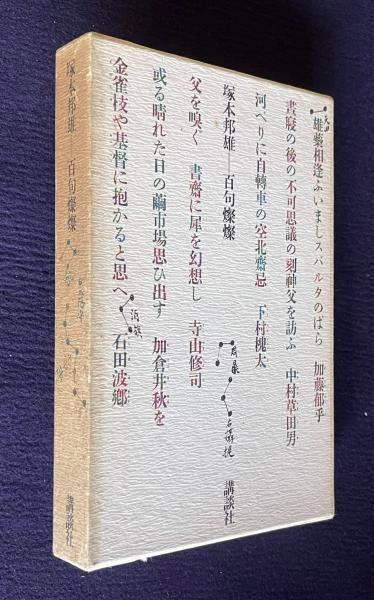 雄蘂相逢ふいましスパルタのばら 加藤郁乎
晝寝の後の不可思議の刻神父を訪ふ 中村草田男
河べりに自轉車の空北齋忌 下村槐太
塚本邦雄―百句燦燦
父を嗅ぐ 書齋に犀を幻想し 寺山修司
或る晴れた日の繭市場思ひ出す 加倉井秋を
金雀枝や基督に抱かると思へ 石田波郷
講談社
塚本邦雄 百句燦燦
講談社